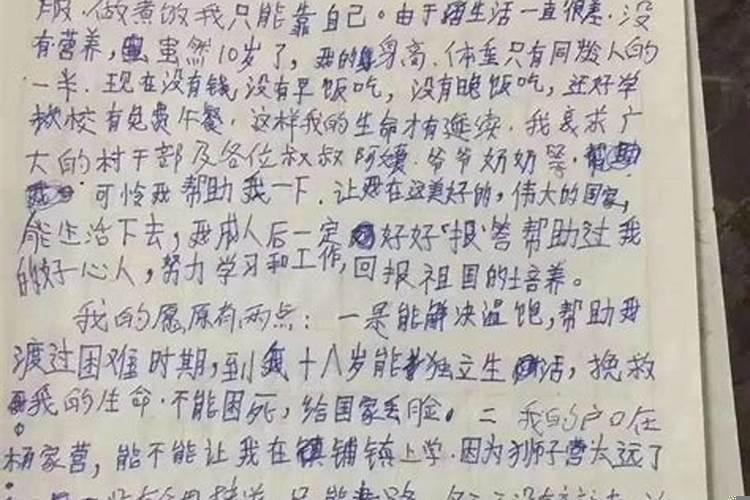 服·做煮饭我只能靠自己。由于生活一直很差·没
有营养,虽然10岁了,我的身高、体重只有同龄人的
一半.现在没有钱,没有早饭吃,没有晚饭吃,还好学
校有免费午餐,这样我的生命才有延续.我哀求广
大的村干部及各位叔叔阿姨.爷爷奶奶等.帮助
可怜我帮助我一下.让我在这美好的,伟大的国家,
能生活下去,我成人后一定好好"报"答帮助过我
的好心人,努力学习和工作,回报祖国的培养。
我的愿原有两点:一是能解决温饱,帮助我
渡过困难时期,到我十八岁能独立生活,挽救
我的生命·不能困死,给国家丢脸。二我的户口在
杨家营,能不能让我在镇铺镇上学.因为狮子营太远了